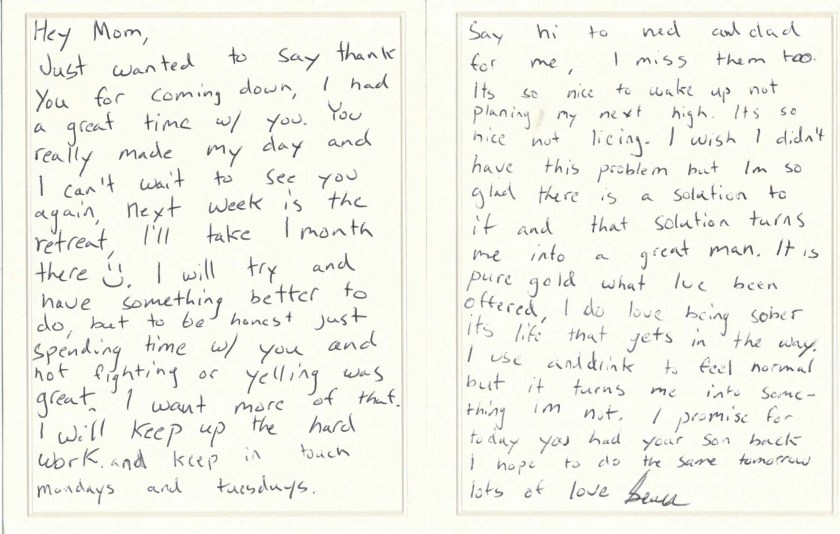 Hey Mom,
Just wanted to say thank
You for coming down, I had
a great time w/ you. You
really made my day and
I can't wait to see you
again, next week is the
retreat, I'll take 1 month
there. I will try and
have something better to
do, but to be honest just
spending time w/ you and
not fighting or yelling was
great, I want more of that.
I will keep up the hard
work. and keep in touch
mondays and tuesdays.
Say hi to ned and dad
for me, I miss them too.
Its so nice to wake up not
planing my next high. Its so
nice not lieing. I wish I didn't
have this problem but Im so
glad there is a solution to
it and that solution turns
me into a great man. It is
pure gold what Ive been
offered, I do love being sober
its life that gets in the way.
I use and drink to feel normal
but it turns me into some-
thing im not. I promise for
today you had your son back
I hope to do the same tomorrow
lots of love